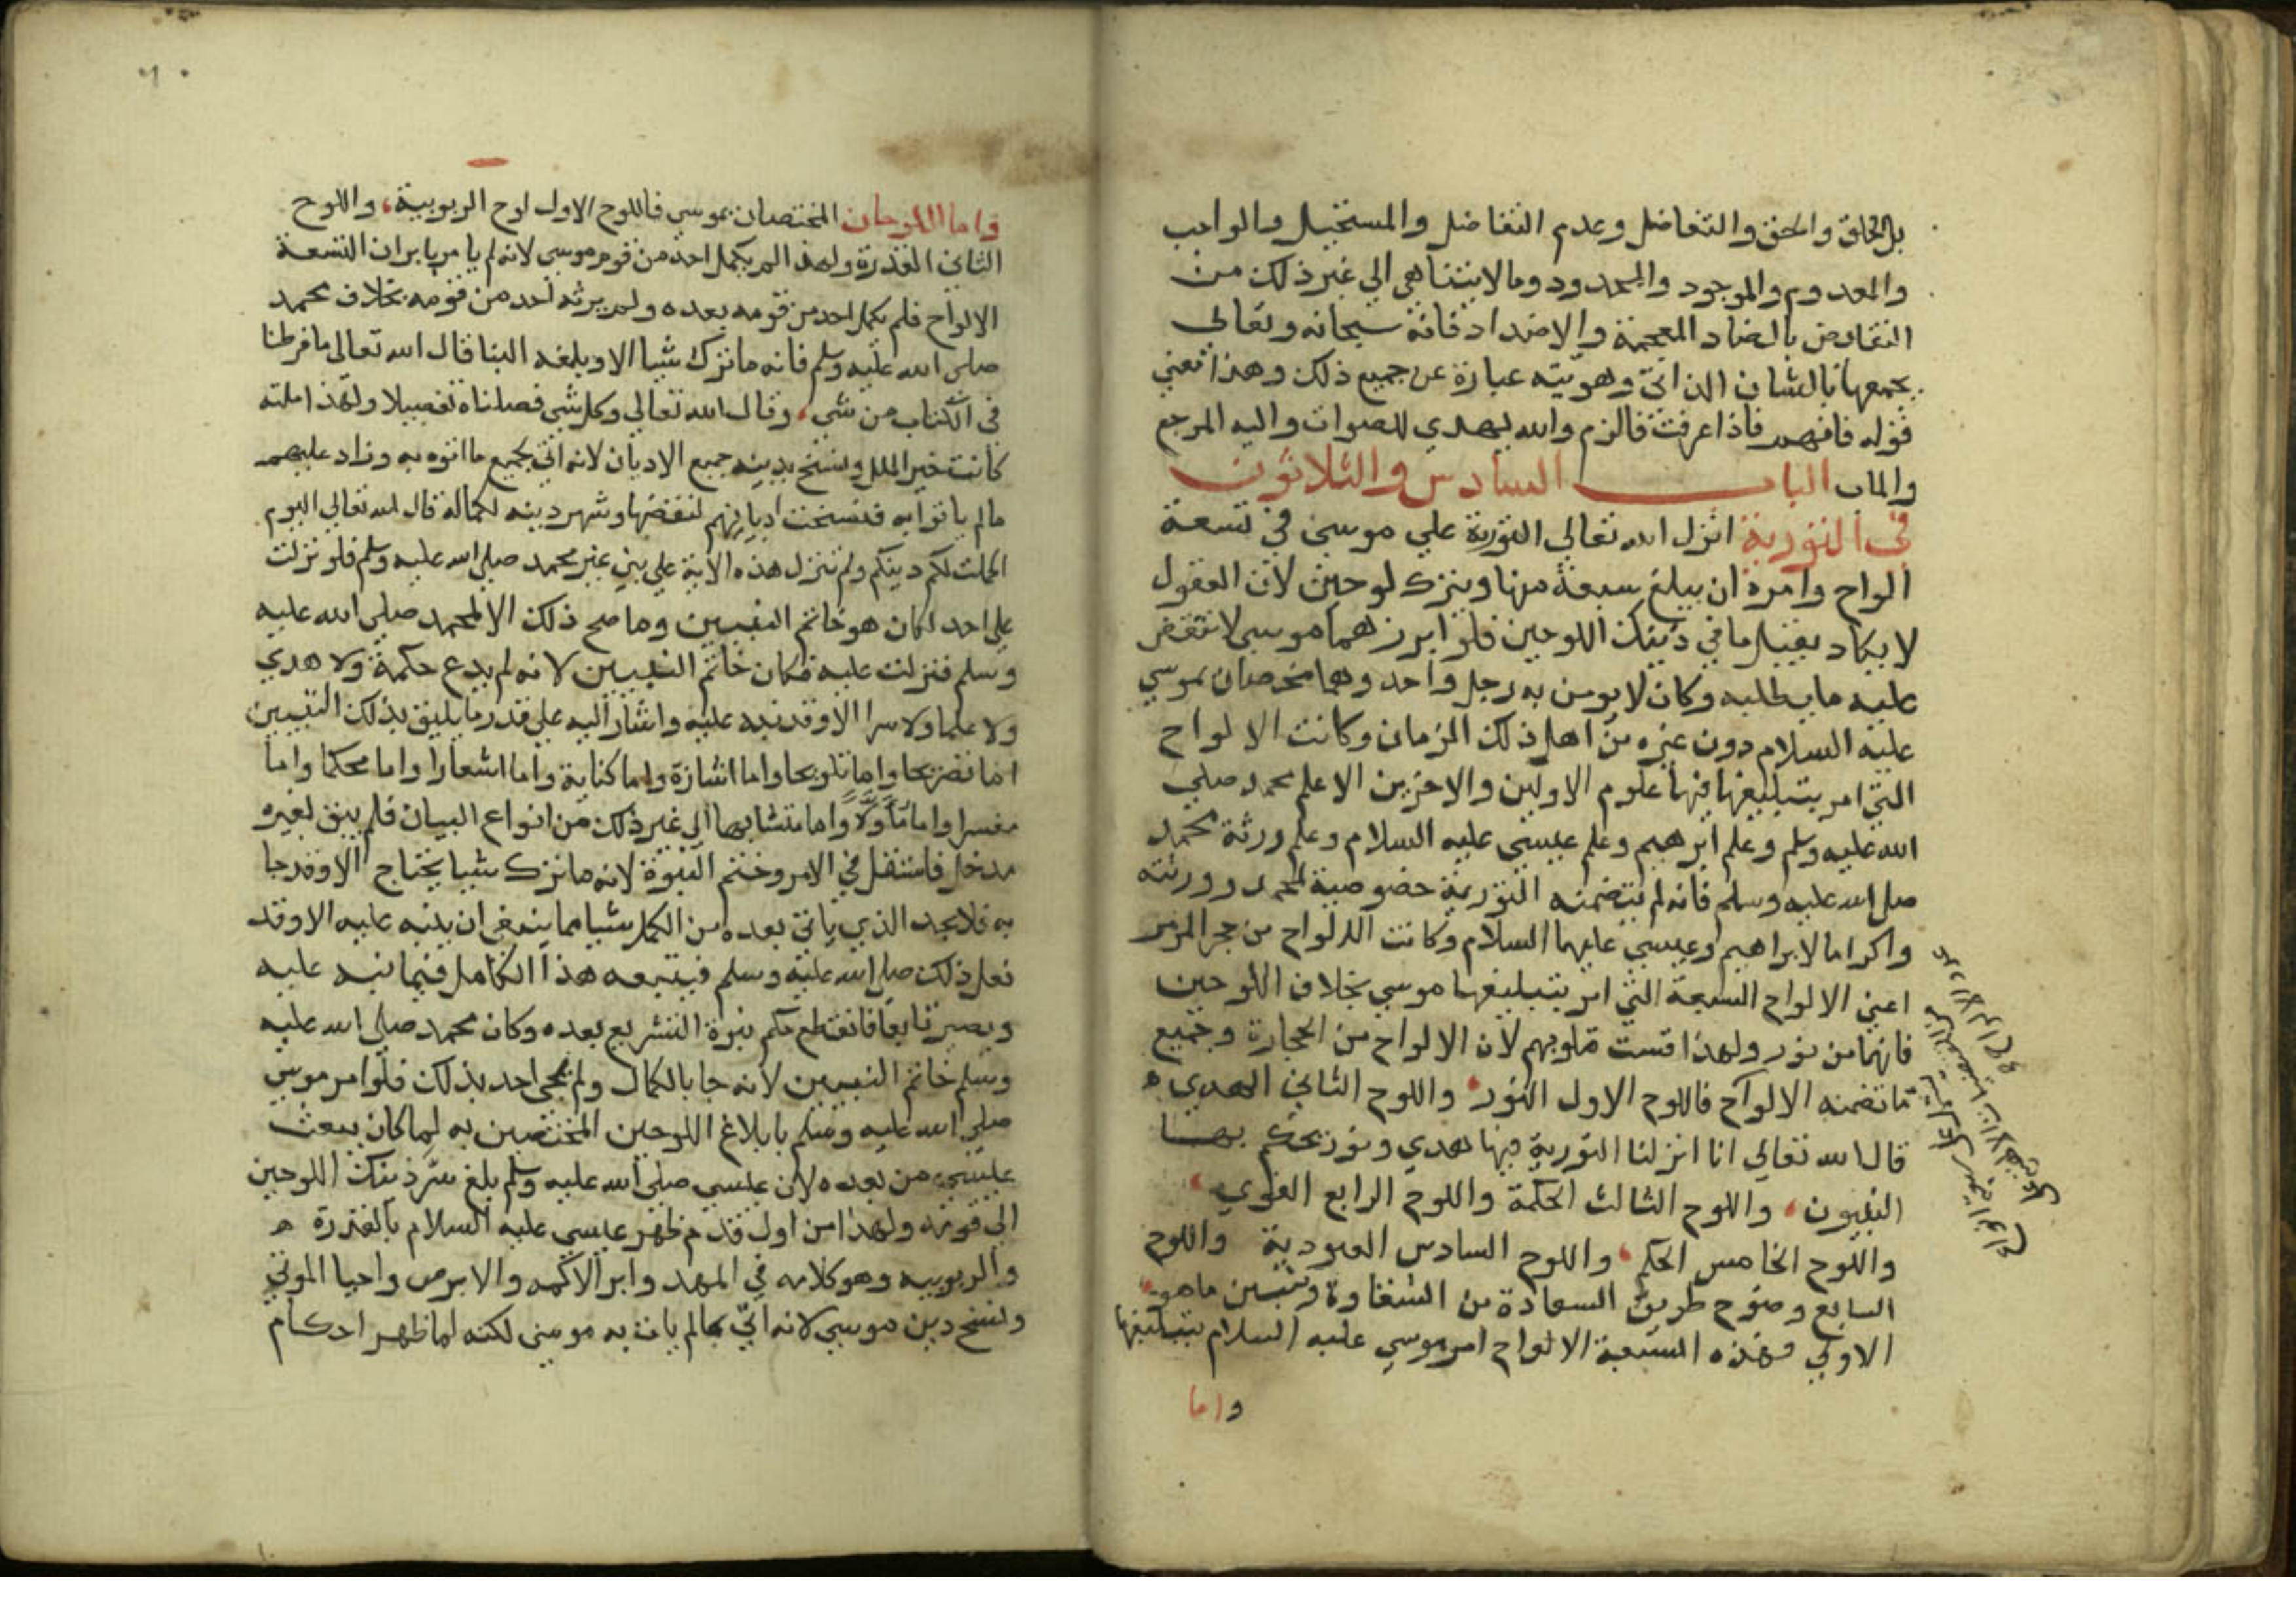 بل الخلق والحق والتفاضل وعدم التفاضل والمستحيل والواجب
والمعدوم والموجود والمحدود وما لا يتناهى الي غير ذلك من
النقايض بالضاد المعجمة والاضداد فانه سبحانه وتعالى
يجمعها بالشان الذاتي وهويته عبارة عن جميع ذلك وهذا تعني
قوله فافهم فاذا عرفت فالزم والله يهدي للصواب واليه المرجع
والماب الباب السادس والثلاثون
في التورية انزل الله تعالى التورية علي موسى في تسعة
الواح وامره ان يبلغ سبعة منها ويترك لوحين لان العقول
لا يكاد يقبل ما في ذينك اللوحين فلو ابرزهما موسى لانتقض
عليه ما يطلبه وكان لا يومن به رجل واحد وهما مخصصان بموسى
عليه السلام دون غيره من اهل ذلك الزمان وكانت الالواح
التي امر بتبليغها فيها علوم الاولين والاخرين الا علم محمد صلى
الله عليه وسلم وعلم ابرهيم وعلم عيسى عليه السلام وعلم ورثة محمد
صلى الله عليه وسلم فانه لم تتضمنه التورية خصوصية لمحمد وورثته
واكراما لابراهيم وعيسى عليهما السلام وكانت الالواح من حجر المرمر
اعني الالواح السبعة التي امر بتبليغها موسى بخلاف اللوحين
فانهما من نور ولهذا قست قلوبهم لان الالواح من الحجارة وجميع
ما تضمنه الالواح فاللوح الاول النور واللوح الثاني الهدي ه
قال الله تعالى انا انزلنا التورية فيها هدي ونور يحكم بها
النبيون واللوح الثالث الحكمة واللوح الرابع القوي
واللوح الخامس الحكم واللوح السادس العبودية واللوح
السابع وضوح طريق السعادة من الشقاوة وتبيين ما هو
الاولي فهذه السبعة الالواح امر موسى عليه السلام بتبليغها
واما
واما اللوحان المختصان بموسى فاللوح الاول لوح الربوبية واللوح
الثاني القدرة ولهذا لم يكمل احد من قوم موسى لانه لم يامر بابراز التسعة
الالواح فلم يكمل احد من قومه بعده ولم يرثه احد من قومه بخلاف محمد
صلى الله عليه وسلم فانه ما ترك شيا الا وبلغه الينا قال الله تعالى ما فرطنا
في الكتاب من شي وقال الله تعالى وكل شي فصلناه تفصيلا ولهذا ملته
كانت خير الملل ونسخ بدينه جميع الاديان لانه اتي بجميع ما اتوه به وزاد عليهم
مالم ياتوا به فنسخت اديانهم لنقضها وشهر دينه لكماله قال الله تعالى اليوم
اكملت لكم دينكم ولم تنزل هذه الاية علي نبي غير محمد صلى الله عليه وسلم فلو نزلت
علي احد لكان هو خاتم النبيين وما صح ذلك الا لمحمد صلى الله عليه
وسلم فنزلت عليه فكان خاتم النبيين لانه لم يدع حكمة ولا هدي
ولا علما ولا سرا الا وقد نبه عليه واشار اليه علي قدر ما يليق بذلك التبيين
اما تصريحا واما تلويحا واما اشارة واما كناية واما اشعارا واما محكما واما
مفسرا واما مأوَّلًا واما متشابها الي غير ذلك من انواع البيان فلم يبق لغيره
مدخل فاستقل في الامر وختم النبوة لانه ما ترك شيا يحتاج الا وقد جا
به فلا يجد الذي ياتي بعده من الكمل شيا مما ينبغي ان ينبه عليه الا وقد
فعل ذلك صلى الله عليه وسلم فيتبعه هذا الكامل فيما نبه عليه
ويصير تابعا فانقطع حكم نبوة التشريع بعده وكان محمد صلى الله عليه
وسلم خاتم النبيين لانه جا بالكمال ولم يجي احد بذلك فلو امر موسى
صلى الله عليه وسلم بابلاغ اللوحين المختصين به لما كان يبعث
عيسى من بعده لان عيسى صلى الله عليه وسلم بلغ سر ذينك اللوحين
الي قومه ولهذا من اول قدم ظهر عيسى عليه السلام بالقدرة ه
والربوبيه وهو كلامه في المهد وابرا الاكمه والابرص واحيا الموتي
ونسخ دين موسى لانه اتي بما لم يات به موسى لكنه لما ظهر احكام